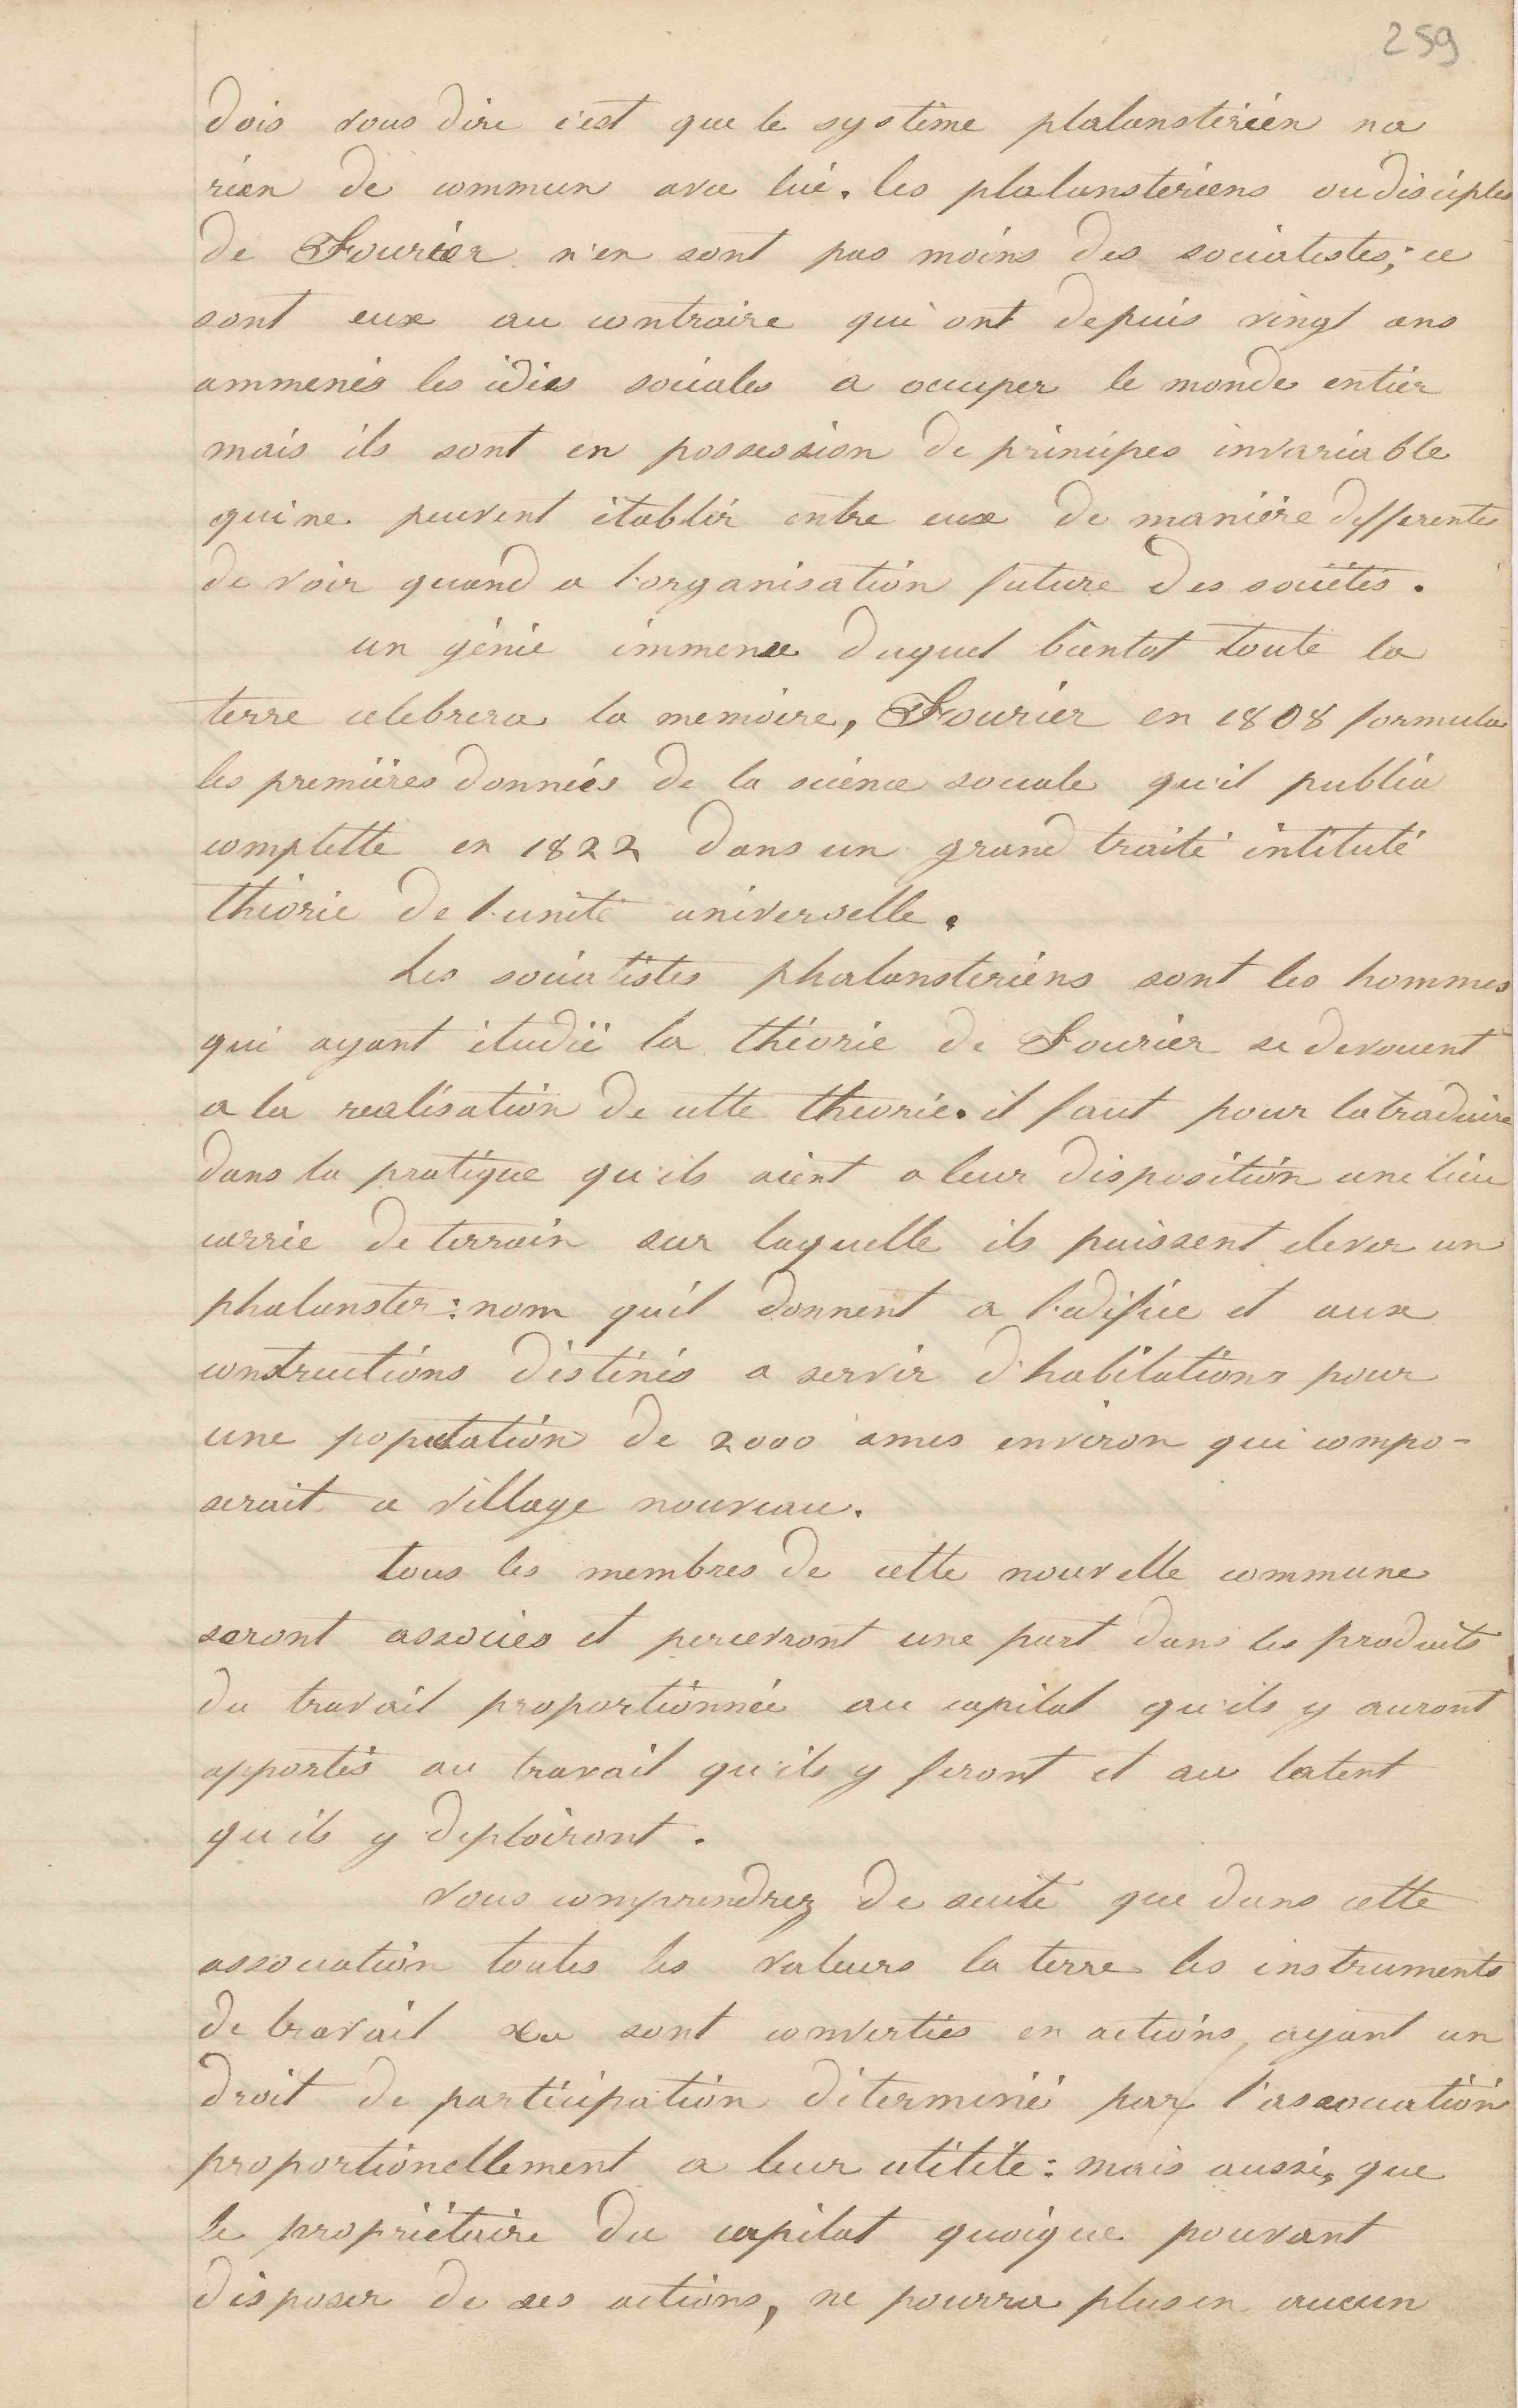 259
dois vous dire c'est que le système phalanstérien na
rien de commun avec lui. les phalansteriens ou disciples
de Fourier n'en sont pas moins des socialistes; ce
sont eux au contraire qui ont depuis vingt ans
ammenés les idées sociales a occuper le monde entier
mais ils sont en possession de principes invariable
qui ne peuvent établir entre eux de manière differentes
de voir quand a l'organisation future des sociétés.
un génie immense duquel bientot toute la
terre celebrera la memoire, Fourier en 1808 formula
les premières données de la science sociale qu'il publia
complette en 1822 dans un grand traité intitulé
théorie de l'unité universelle.
Les socialistes phalansteriens sont les hommes
qui ayant étudié la théorie de Fourier se devouent
a la realisation de cette theorie. il faut pour la traduire
dans la pratique qu'ils aient a leur disposition une lieu
carrée de terrain sur laquelle ils puissent elever un
phalanster: nom quil donnent a l'edifice et aux
constructions déstinés a servir d'habitations pour
une population de 2000 ames environ qui compo-
serait ce village nouveau.
tous les membres de cette nouvelle commune
seront associés et percevront une part dans les produits
du travail proportionnée au capital qu'ils y auront
apportés au travail qu'ils y feront et au talent
qu'ils y deploiront.
vous comprendrez de suite que dans cette
association toutes les valeurs la terre les instruments
de travail sont converties en actions, ayant un
droit de participation déterminé par l'association
proportionellement a leur utilité: mais aussi, que
le propriétaire du capital quoique pouvant
disposer de ses actions, ne pourra plus en aucun